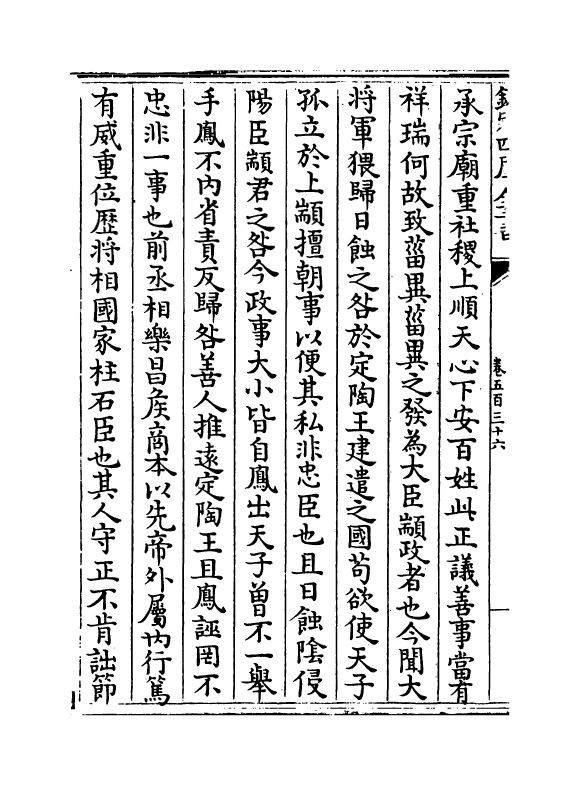 欽定四庫全書
卷五百三十六
承宗廟重社稷上順天心下安百姓此正議善事當有
祥瑞何故致菑異菑異之發為大臣顓政者也今聞大
將軍猥歸日蝕之咎於定陶王建遣之國苟欲使天子
孤立於上顓擅朝事以便其私非忠臣也且日蝕陰侵
陽臣顓君之咎今政事大小皆自鳳出天子曽不一舉
手鳳不内省責反歸咎善人推逺定陶王且鳳誣罔不
忠非一事也前丞相樂昌矦商本以先帝外屬内行篤
有威重位歴將相國家柱石臣也其人守正不肯詘節